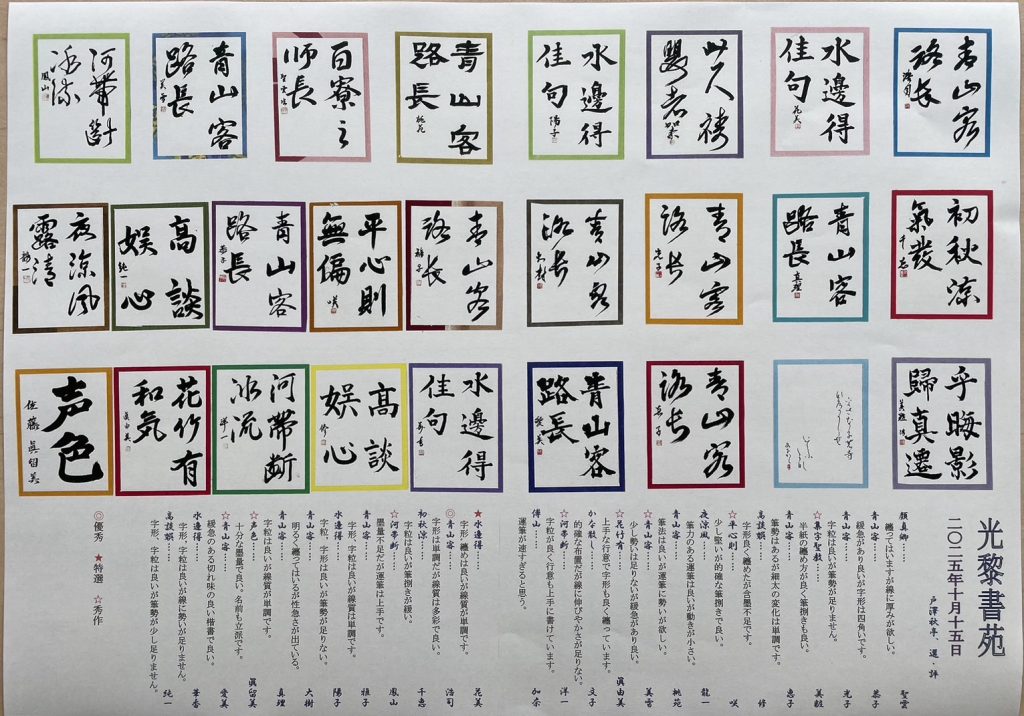 青山容
路長
水邊得
佳句
花美
水邊得
佳句
陽子
青山容
路長
桃苑
百寮之
師長
青山容
路長
美雪
河帶斷
冰流
鳳山
初秋涼
氣發
千恵
青山容
路長
真理
青山容
路長
光子
青山容
路長
大樹
青山容
路長
雅子
平心則
無偏
咲
青山容
路長
恭子
高談
娯心
純一
夜涼風
露清
龍一
乎晦影
歸真遷
青山容
路長
恵子
青山容
路長
愛美
水邊得
佳句
華香
高談
娯心
修
河帶斷
冰流
洋一
花竹有
和気
眞由美
声色
佐藤眞留美
光黎書苑
二〇二五年十月十五日
戸澤秋亭 選・評
顔真卿…… 聖雲
纏ってはいますが線に厚みが欲しい。
青山容…… 恭子
緩急があり良いが字形は四角いです。
青山容…… 光子
字粒は良いが筆勢が足りません。
☆集字聖教……
半紙の纏め方が良く筆捌きも良い。
青山容…… 恵子
筆勢はあるが細太の変化は単調です。
高談誤…… 修
字形良く纏めたが含墨不足です。
☆平心則…… 咲
少し堅いが的確な筆捌きで良い。
夜涼風…… 龍一
筆力のある運筆は良いが動きが小さい。
青山容…… 桃苑
筆法は良いが運筆に勢いが欲しい。
☆青山容…… 美雪
少し勢いは足りないが緩急があり良い。
☆花竹有…… 眞由美
上手な行意で字形も良く纏っています。
かな散し…… 文子
的確な布置だが線に伸びやかさが足りない。
☆河帯断…… 洋一
字粒が良く行意も上手に書けています。
傅山…… 加奈
運筆が速すぎると思う。
★水邊得…… 花美
字形、纏めは良いが線質が単調です。
◎青山容…… 浩司
字形は単調だが線質は多彩で良い。
初秋涼…… 千恵
字粒は良いが筆捌きが緩い。
☆河帯断…… 鳳山
墨量不足だが運筆は上手です。
青山容…… 雅子
字形、字粒は良いが線質は単調です。
水邊得…… 陽子
字粒、字形は良いが筆勢が足りない。
青山容…… 大樹
明るく纏ってはいるが性急さが出ている。
青山容…… 真理
字粒は良いが線質が単調です。
☆声色…… 眞留美
十分な墨量で良い。名前も立派です。
☆青山容…… 愛美
緩急のある切れ味の良い楷書で良い。
水邊得…… 華香
字形、字粒は良いが線に勢いが足りません。
高談誤…… 純一
字形、字粒は良いが筆勢が少し足りません。
◎優秀 ★特選 ☆秀作